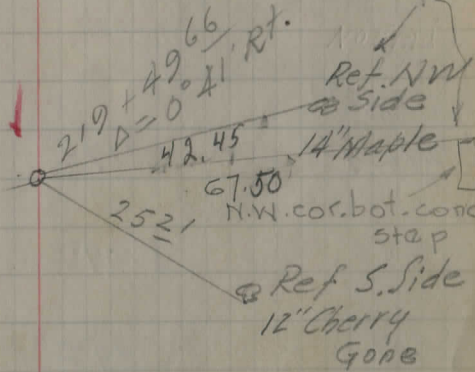 219+49 66
Δ = 0° 41' Rt.
Ref. NW
Side
42.45
14" Maple
67.50
N.W. cor. bot. conc
step
25 21
Ref S. Side
12" Cherry
Gone